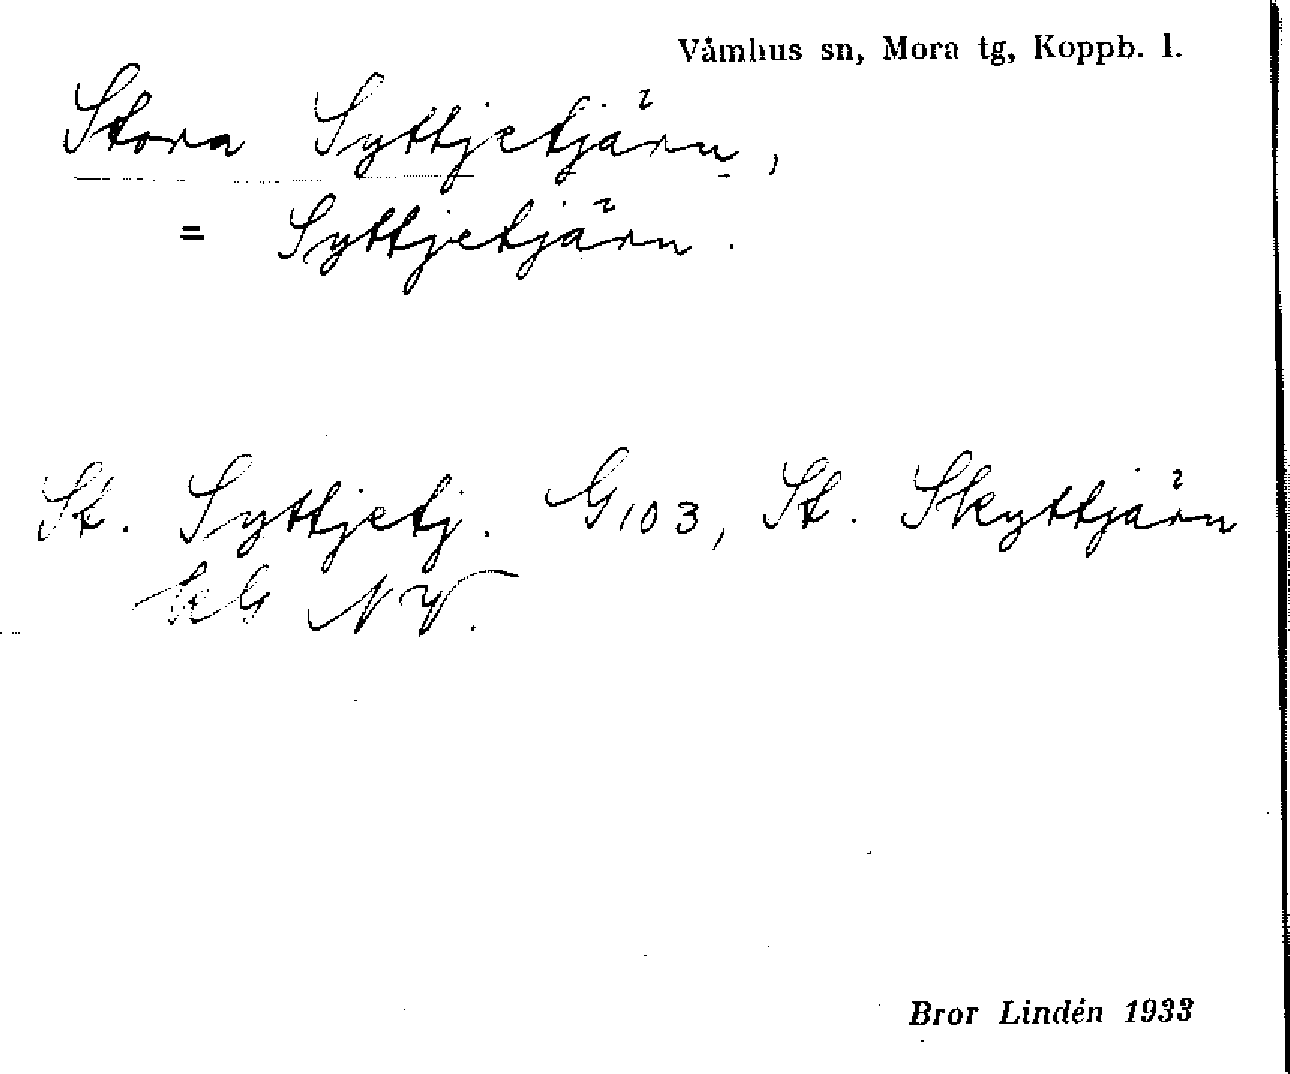 Våmhus sn, Mora tg, Koppb. l.
Stora Syttjetjärn,
= Syttjetjärn.
St. Syttjetj. G103, St. Skyttjärn
NV.
Bror Lindén 1933